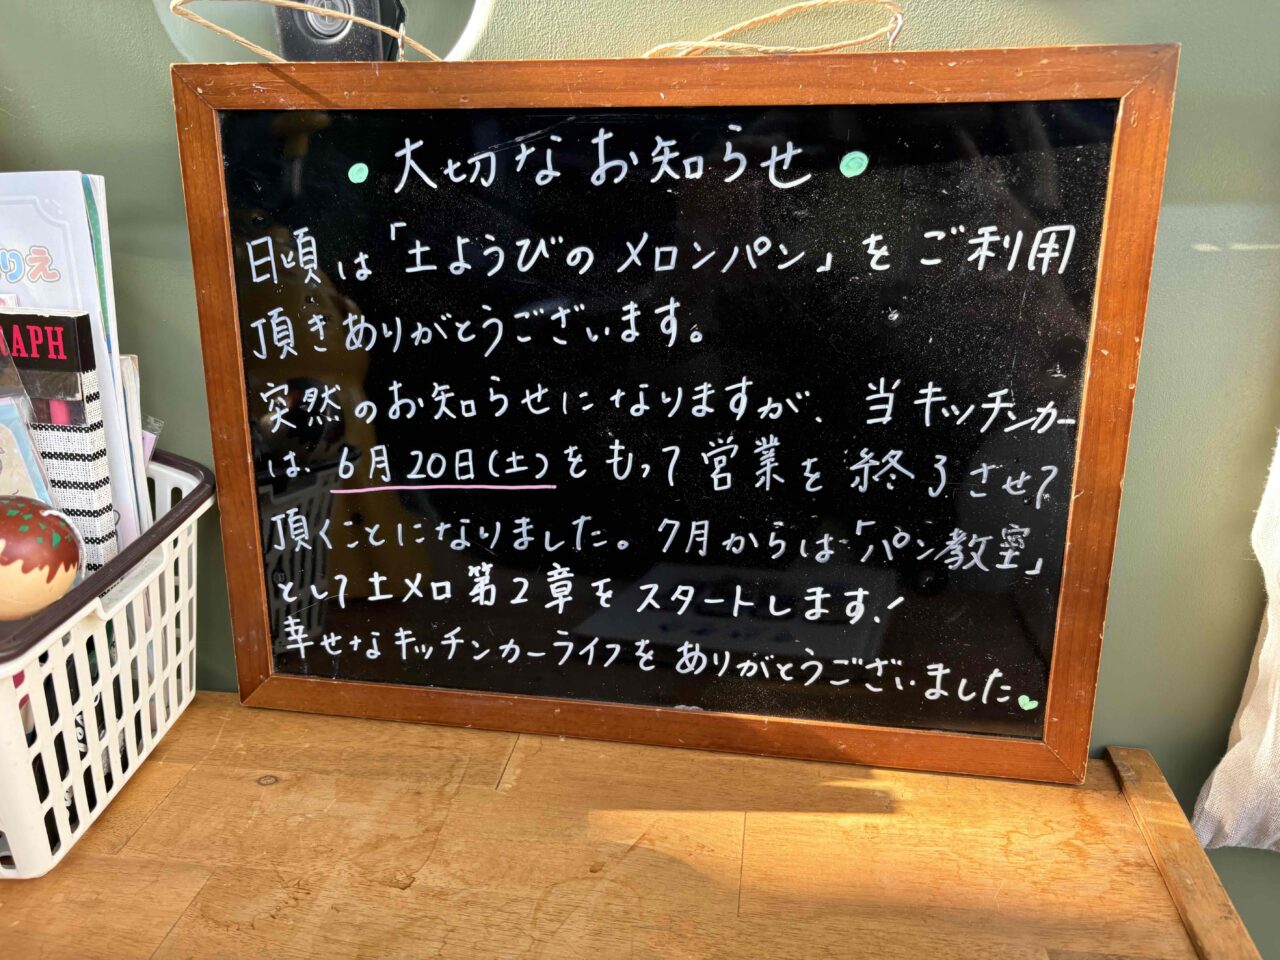 大切なお知らせ
日頃は「土ようびのメロンパン」をご利用
頂きありがとうございます。
突然のお知らせになりますが、当キッチンカー
は、6月20日(土)をもって営業を終了させて
頂くことになりました。7月からは「パン教室」
として土メロ第2章をスタートします!
幸せなキッチンカーライフをありがとうございました
りえ
RAPH